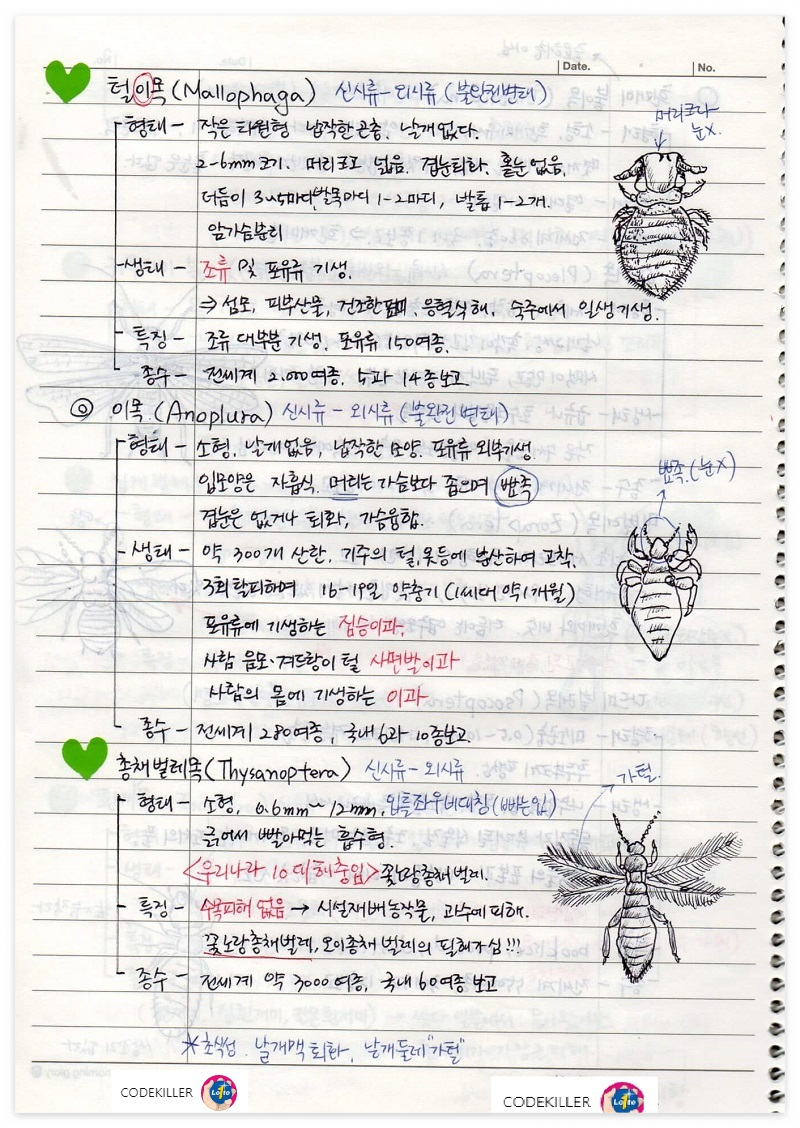 Date.
No.
털이목 (Mallophaga) 신시류-외시류 (불완전변태)
머리크다-
눈X.
형태 - 작은 타원형 납작한곤충. 날개없다.
2-6mm크기. 머리크고 넓음. 겹눈퇴화, 홑눈없음,
더듬이 3~5마디, 발목마디 1-2마디, 발톱 1-2개.
앞가슴분리
생태 - 조류 및 포유류 기생.
⇒ 섬모, 피부산물, 건조한 응혈식해, 숙주에서 일생기생.
특징 - 조류 대부분 기생. 포유류 150여종.
종수 - 전세계 2.000여종. 5과 14종보고
◎ 이목 (Anoplura) 신시류 - 외시류 (불완전변태)
형태 - 소형, 날개없음, 납작한 모양. 포유류 외부기생.
입모양은 자흡식. 머리는 가슴보다 좁으며 뾰족
뾰족.(눈X)
겹눈은 없거나 퇴화, 가슴융합.
생태 - 약 300개 산란. 기주의 털, 옷등에 산란하여 고착,
3회탈피하여 16-19일 약충기 (1세대 약1개월)
포유류에 기생하는 짐승이과,
사람 음모·겨드랑이 털 사면발이과
사람의 몸에 기생하는 이과
종수 - 전세계 280여종, 국내 6과 10종보고.
총채벌레목 (Thysanoptera) 신시류-외시류
가털.
형태 - 소형, 0.6mm~12mm, 입틀좌우비대칭(빠는입)
긁어서 빨아먹는 흡수형.
<우리나라 10대해충임> 꽃노랑총채벌레.
특징 - 수목피해 없음 → 시설재배농작물, 과수에 피해.
꽃노랑총채벌레, 오이총채벌레의 피해가심!!!
종수 - 전세계 약 3000여종, 국내 60여종 보고
*초식성. 날개맥 퇴화, 날개둘레 "가털"
morning glory
CODEKILLER Lotto
CODEKILLER Lotto